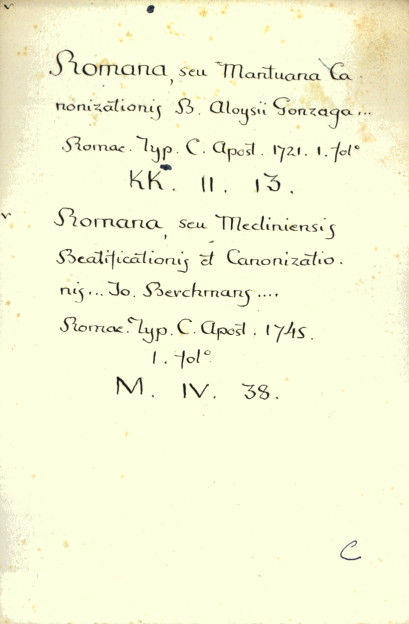 Romana, seu Mantuana Ca.
nonizationis B. Aloysii Gonzaga...
Romae. Typ. C. Apost. 1721. 1. fol°
KK. II. 13.
Romana, seu Mecliniensis
Beatificationis et Canonizatio.
nis... Jo. Berchmans....
Romae. Typ. C. Apost. 1745.
1. fol°
M. IV. 38.
C